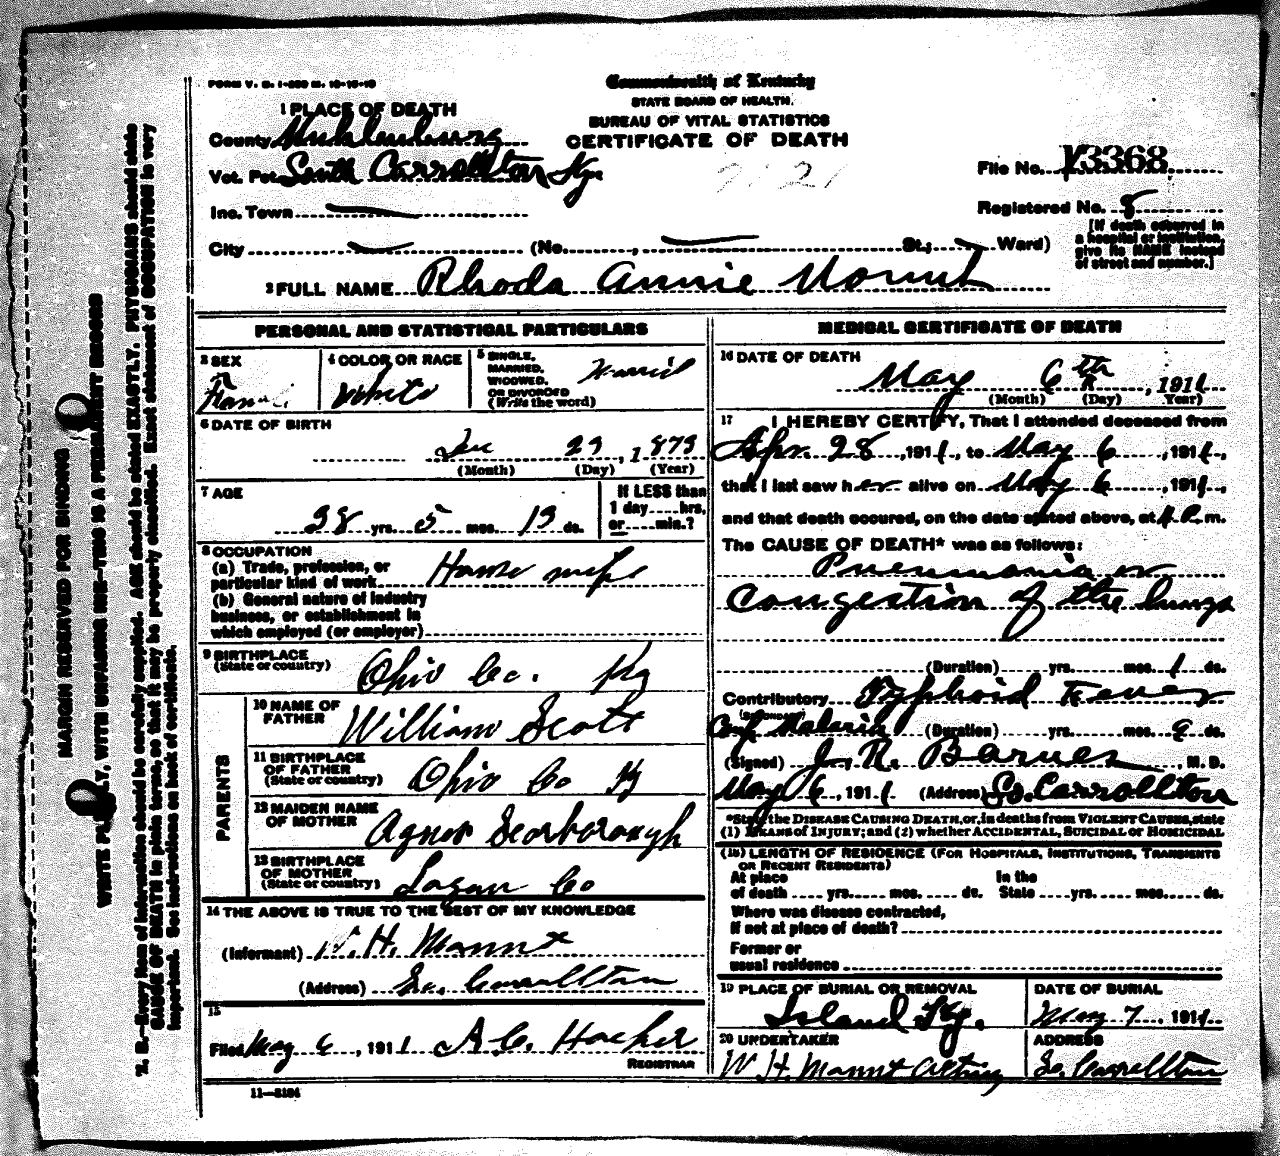 FORM V. S. 1-250 M. 10-15-10
Commonwealth of Kentucky
STATE BOARD OF HEALTH.
BUREAU OF VITAL STATISTICS
CERTIFICATE OF DEATH
1 PLACE OF DEATH
County Muhlenburg
Vot. Pct. South Carrollton Ky
Inc. Town
City (No. , St.; Ward)
File No. 13368
Registered No. 8
[If death occurred in
a hospital or institution,
give its NAME instead
of street and number.]
2 FULL NAME Rhoda Annie
PERSONAL AND STATISTICAL PARTICULARS
3 SEX
4 COLOR OR RACE
White
5 SINGLE,
MARRIED,
WIDOWED,
OR DIVORCED
(Write the word)
Married
6 DATE OF BIRTH
23, 1873
(Month) (Day) (Year)
7 AGE
38 yrs. 5 mos. 13 ds.
If LESS than
1 day hrs.
or min.?
8 OCCUPATION
(a) Trade, profession, or
particular kind of work House wife
(b) General nature of industry
business, or establishment in
which employed (or employer)
9 BIRTHPLACE
(State or country)
Ohio Co. Ky
PARENTS
10 NAME OF
FATHER
William Scott
11 BIRTHPLACE
OF FATHER
(State or country)
Ohio Co Ky
12 MAIDEN NAME
OF MOTHER
Agnes Scarborough
13 BIRTHPLACE
OF MOTHER
(State or country)
Logan Co
14 THE ABOVE IS TRUE TO THE BEST OF MY KNOWLEDGE
(Informant) W. H. Mannt
(Address) So. Carrollton
15
Filed May 6, 1911 A. C. Hocker
REGISTRAR
11—3184
MEDICAL CERTIFICATE OF DEATH
16 DATE OF DEATH
May 6th, 1911
(Month) (Day) Year)
17 I HEREBY CERTIFY, That I attended deceased from
Apr. 28, 1911, to May 6, 1911,
that I last saw her alive on May 6, 1911,
and that death occured, on the date stated above, at m.
The CAUSE OF DEATH* was as follows:
Pneumonia or
Congestion of the lungs
(Duration) yrs. mos. 1 ds.
Contributory Typhoid Fever
(SECONDARY)
Malaria (Duration) yrs. mos. 9 ds.
(Signed) J. R. Barnes, M. D.
May 6, 1911 (Address) So. Carrollton
*State the DISEASE CAUSING DEATH, or, in deaths from VIOLENT CAUSES, state
(1) MEANS of INJURY; and (2) whether ACCIDENTAL, SUICIDAL or HOMICIDAL
(18) LENGTH OF RESIDENCE (FOR HOSPITALS, INSTITUTIONS, TRANSIENTS
OR RECENT RESIDENTS)
At place In the
of death yrs. mos. ds. State yrs. mos. ds.
Where was disease contracted,
If not at place of death?
Former or
usual residence
19 PLACE OF BURIAL OR REMOVAL
Island Ky.
DATE OF BURIAL
May 7, 1911
20 UNDERTAKER
W H. Mannt
ADDRESS
So. Carrollton
MARGIN RESERVED FOR BINDING
WRITE PLAINLY, WITH UNFADING INK—THIS IS A PERMANENT RECORD
N. B.—Every item of information should be carefully supplied. AGE should be stated EXACTLY. PHYSICIANS should state
CAUSE OF DEATH in plain terms, so that it may be properly classified. Exact statement of OCCUPATION is very
important. See instructions on back of certificate.